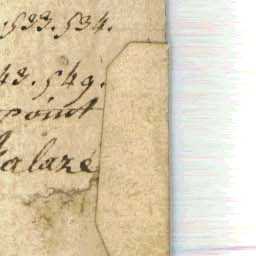 . 533. 534.
43. 549.
point
alaze